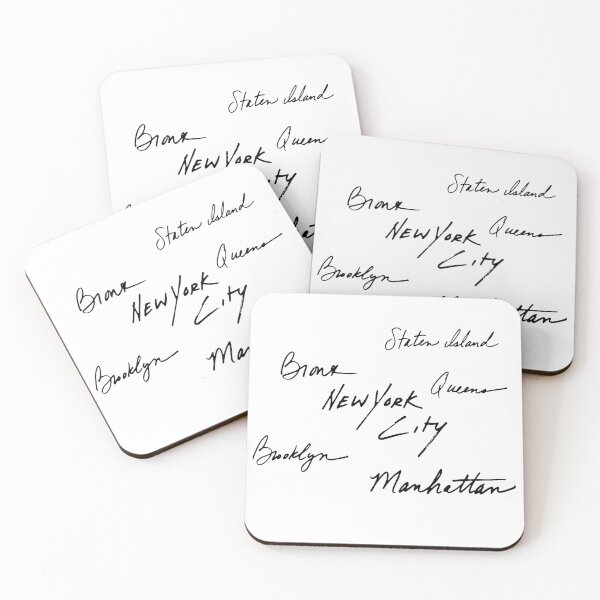 Staten Island
Bronx Queen
NEW YORK
City
Staten Island
Bronx
NEW YORK Queens
City
Brooklyn
Manhattan
Staten Island
Bronx Queens
NEW YORK
City
Brooklyn Man
Staten Island
Bronx
NEW YORK Queens
City
Brooklyn
Manhattan